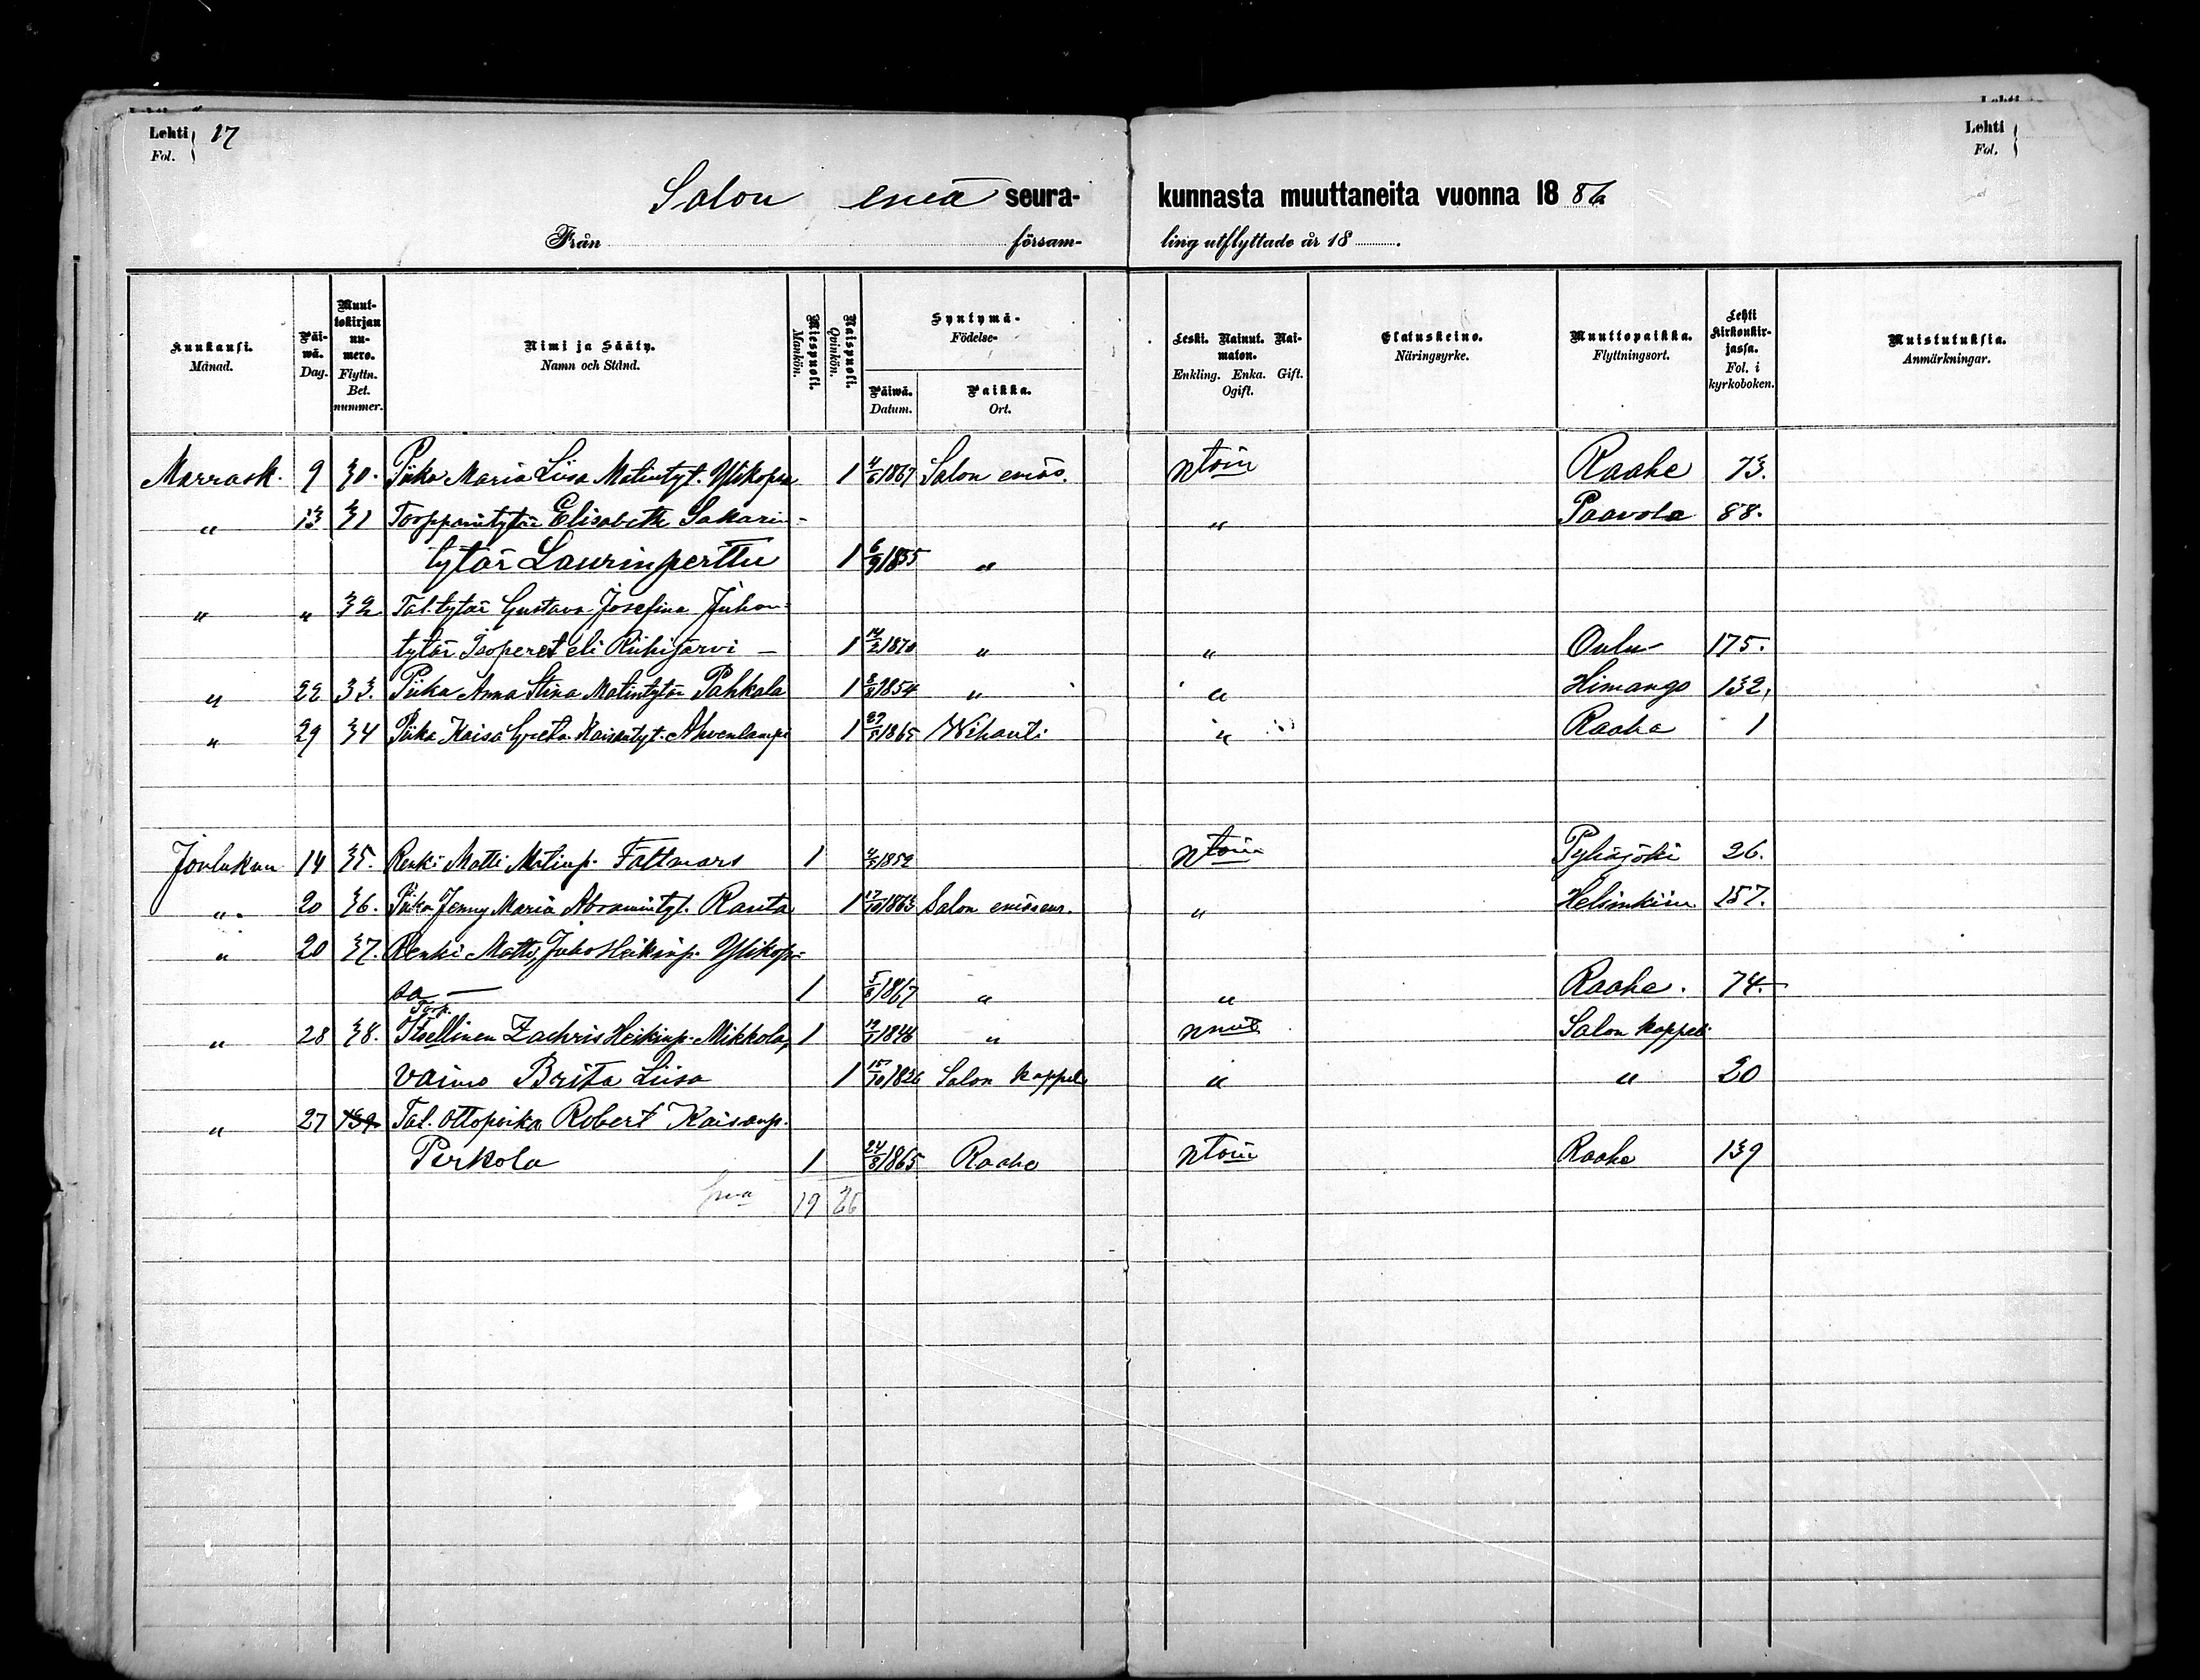 Lehti 17 Lehti
Fol. Fol.
Salon emä seura- kunnasta muuttaneita vuonna 1886
Från församling utflyttade år 18
Kuukausi. Månad. Päiwä. Dag. Muuttokirjan numero. Flyttn. Bet. nummer. Nimi ja Sääty. Namn och Stånd. Miespuoli. Mankön. Naispuoli. Qvinkön. Syntymä- Födelse- Päiwä. Datum. Paikka. Ort. Leski. Nainut. Naimaton. Enkling. Enka. Gift. Ogift. Elatuskeino. Näringsyrke. Muuttopaikka. Flyttningsort. Lehti Kirkonkirjassa. Fol. i kyrkoboken. Muistutuksia. Anmärkningar.
Marrask. 9 30. Piika Maria Liisa Matintyt. Ylikopsa 1 4/6 1867 Salon emäs. ntoin Raahe 73.
" 13 31 Torpparintytär Elisabeth Sakarin- " Paavola 88.
tytär Laurinperttu 1 6/9 1855 "
" " 32 Tal. tytär Gustava Josefina Juhon-
tytär Isoperet eli Riihijärvi — 1 14/2 1870 " " Oulu 175.
" 22 33. Piika Anna Stina Matintytär Pahkala 1 8/8 1854 " " Himango 132,
" 29 34 Piika Kaisa Greta Kaisantyt. Ahvenlampi 1 27/5 1865 Wihanti " Raahe 1
Joulukuu 14 35. Renki Matti Matinp. Faltmars 1 4/3 1852 ntoin Pyhäjoki 26.
" 20 36. Piika Jenny Maria Abramintyt. Ranta 1 17/10 1863 Salon emäseur. " Helsinkiin 157.
" 20 37. Renki Matti Juho Heikinp. Ylikop-
sa — 1 5/8 1867 " " Raahe. 74.
Torp.
" 28 38. Itsellinen Zachris Heikinp. Mikkola, 1 1846 " nnut Salon kappeli
vaimo Brita Liisa 1 15/10 1826 Salon kappeli " " 20
" 27 139 Tal. ottopoika Robert Kaisanp.
Perkola 1 24/8 1865 Raahe ntoin Raahe 139
Sma 19 26